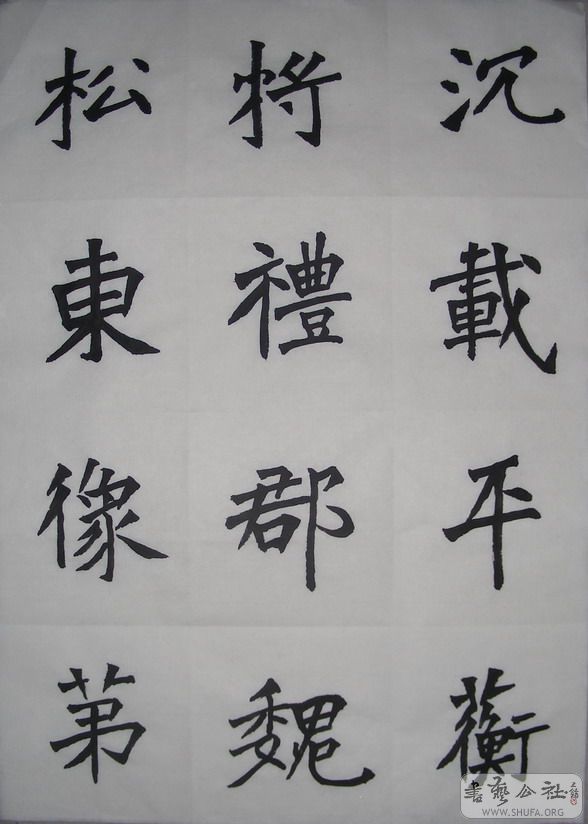 沉載平蘅
將禮郡魏
松東像苐
書藝公社
WWW.SHUFA.ORG